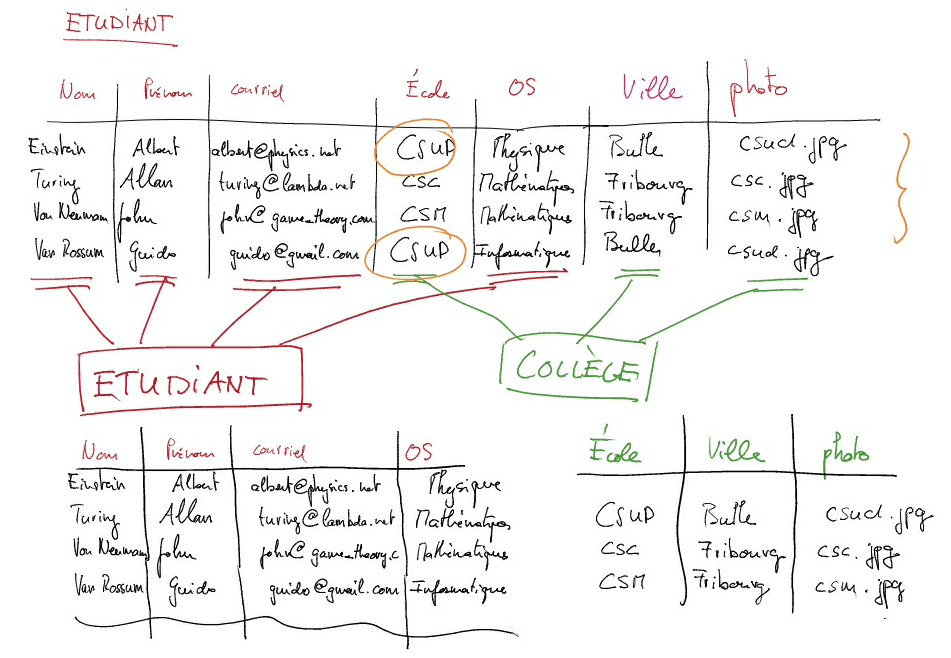 ETUDIANT
Nom Prénom courriel École OS Ville photo
Einstein Albert albert@physics.net CSUD Physique Bulle csud.jpg
Turing Allan turing@lambda.net CSC Mathématiques Fribourg csc.jpg
Von Neumann John john@game_theory.com CSM Mathématiques Fribourg csm.jpg
Van Rossum Guido guido@gmail.com CSUD Informatique Bulle csud.jpg
ETUDIANT COLLÈGE
Nom Prénom courriel OS École Ville photo
Einstein Albert albert@physics.net Physique
Turing Allan turing@lambda.net Mathématiques CSUD Bulle csud.jpg
Von Neumann John john@game_theory.c Mathématiques CSC Fribourg csc.jpg
Van Rossum Guido guido@gmail.com Informatique CSM Fribourg csm.jpg